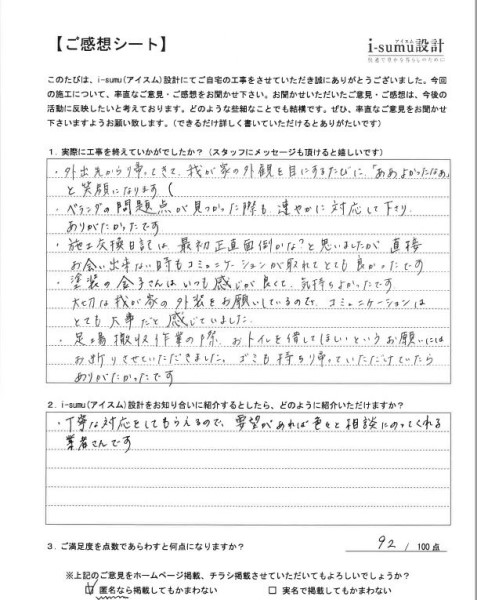 【ご感想シート】
アイスム
i-sumu設計
このたびは、i-sumu(アイスム)設計にてご自宅の工事をさせていただき誠にありがとうございました。今回
の施工について、率直なご意見・ご感想をお聞かせ下さい。お聞かせいただいたご意見・ご感想は、今後の
活動に反映したいと考えております。どのような些細なことでも結構です。ぜひ、率直なご意見をお聞かせ
下さいますようお願い致します。（できるだけ詳しく書いていただけるとありがたいです）
1. 実際に工事を終えていかがでしたか？（スタッフにメッセージも頂けると嬉しいです）
・外出先から帰ってきて、我が家の外観を目にするたびに、「ああよかったなぁ」
と笑顔になります（
・ベランダの問題点が見つかった際も速やかに対応して下さり
ありがたかったです
・施工交換日記は、最初正直面倒かな？と思いましたが、直接
お会い出来ない時もコミュニケーションが取れてとても良かったです
・塗装の金子さんはいつも感じが良くて、気持ちよかったです
大切な我が家の外装をお願いしているので、コミュニケーションは
とても大事だと感じていました。
・足場撤収作業の際、おトイレを借してほしいというお願いには
お断りさせていただきました。ゴミも持ち帰っていただけていたら
ありがたかったです
2. i-sumu(アイスム)設計をお知り合いに紹介するとしたら、どのように紹介いただけますか？
・丁寧な対応をしてもらえるので、要望があれば色々と相談にのってくれる
業者さんです
3. ご満足度を点数であらわすと何点になりますか？ 92 / 100 点
※上記のご意見をホームページ掲載、チラシ掲載させていただいてもよろしいでしょうか？
☑ 匿名なら掲載してもかまわない □ 実名で掲載してもかまわない